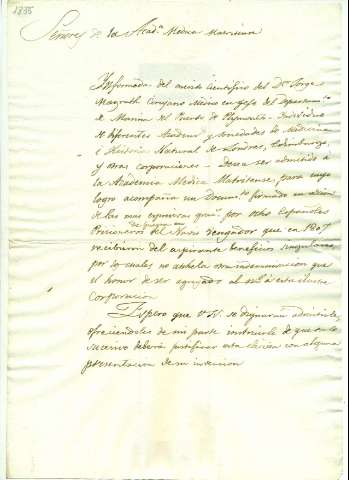 1835
Señores de la Acad.ª Medica Matritense
Informada del merito cientifico del Dor. Jorge
Magrath Cirujano Medico en gefe del Departam.to
de Marina del Puerto de Plymouth Individuo
de diferentes Academ.s y sociedades de Medicina
é Historia Natural de Londres, Edimburgo,
y otras corporaciones Desea ser admitido á
la Academia Medica Matritense, para cuyo
logro acompaña un Docum.to firmado en
de las mas expresivas grac.s por ocho Españoles
Prisioneros de guerra del Navio Vengador que en 1807
recibieron del aspirante beneficios singulares
por lo cuales no anhela otra que
el honor de ser agregado al esta ilustre
Corporacion
Espero que V.SS. se dignaran admitirle,
ofreciendoles de mi parte instruirle de que en lo
sucesivo debera justificar esta eleccion con alguna
presentacion de su